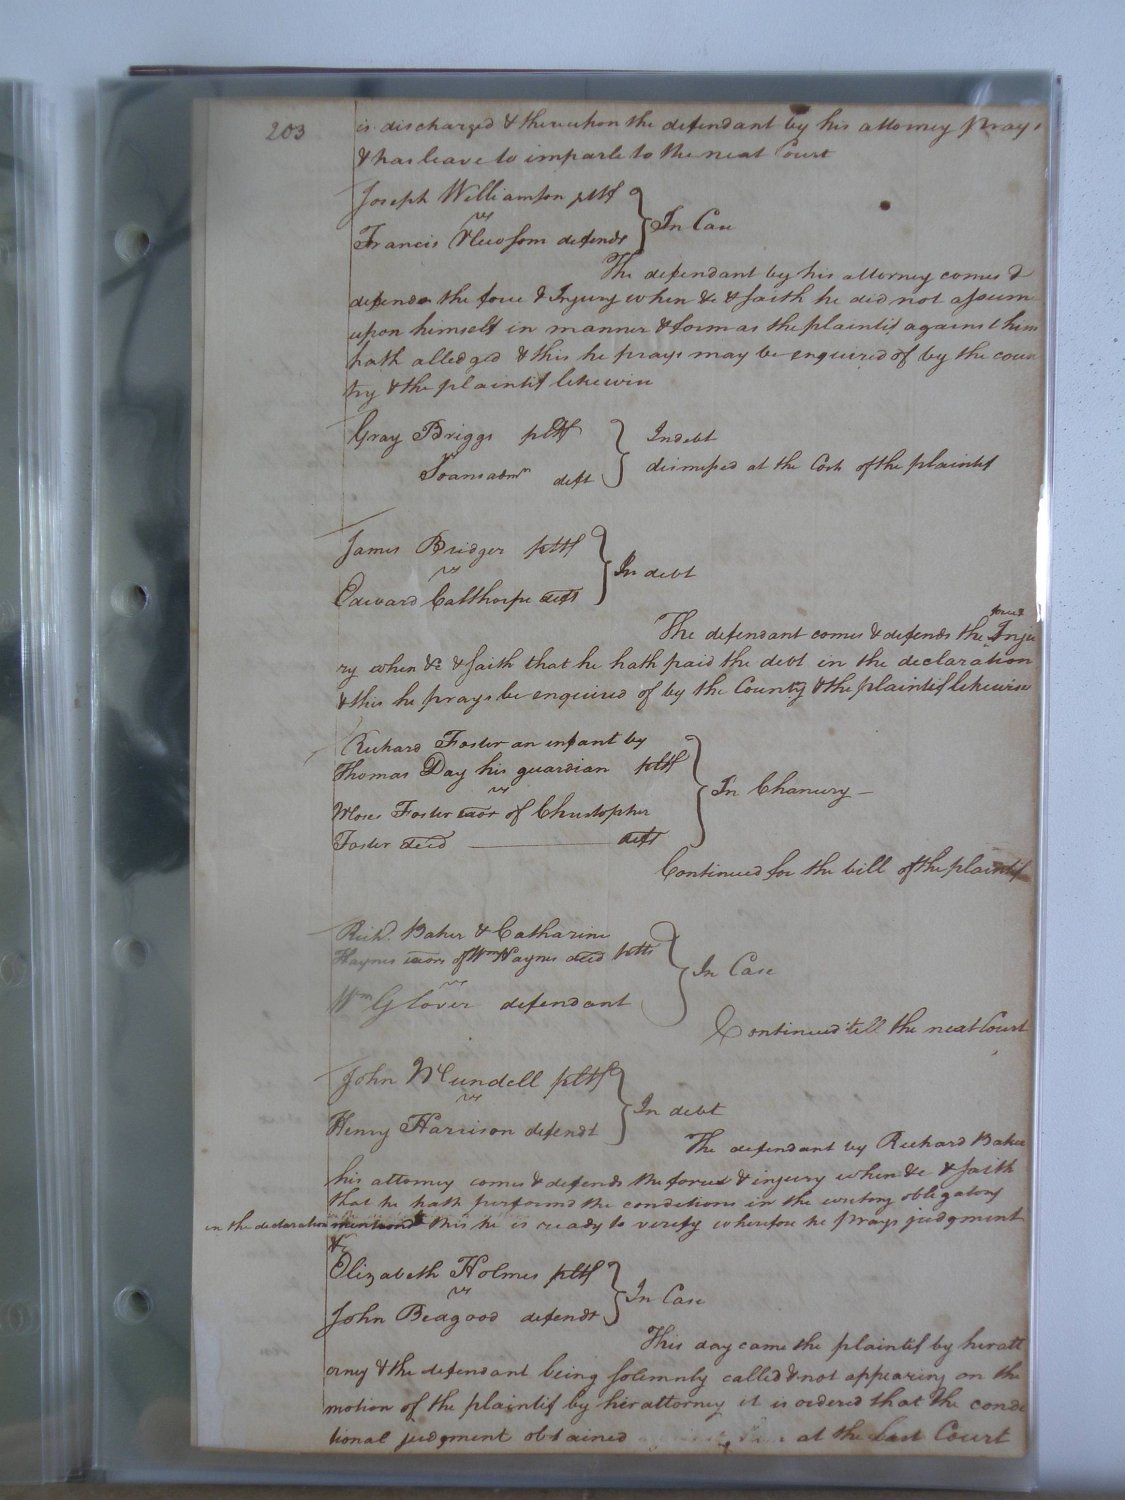 203
is discharged & thereupon the defendant by his attorney prays
& has leave to imparle to the next Court
Joseph Williamson pltf
vs
Francis Newsom defendt
In Case
The defendant by his attorney comes &
defends the force & Injury when &c & saith he did not assum
upon himself in manner & form as the plaintif against him
hath alledged & this he prays may be enquired of by the coun
try & the plaintif likewise
Gray Briggs pltf
vs
deft
In debt
dismissed at the Cost of the plaintif
James Bridger pltf
vs
Edward Calthorpe deft
In debt
The defendant comes & defends the force & Inju
ry when &c & saith that he hath paid the debt in the declaration
& this he prays be enquired of by the County & the plaintif likewise
Richard Foster an infant by
Thomas Day his guardian pltf
vs
Moses Foster exor of Christopher
Foster decd deft
In Chancery
Continued for the bill of the plaintif
Richd. Baker & Catharine
Haynes exors of Wm Haynes decd pltfs
vs
Wm Glover defendant
In Case
Continued till the next Court
John Mundell pltf
vs
Henry Harrison defendt
In debt
The defendant by Richard Baker
his attorney comes & defends the force & injury when &c & saith
that he hath performd the conditions in the writing obligatory
in the declaration mentiond & this he is ready to verify wherefore he prays judgment
&c
Elizabeth Holmes pltf
vs
John Bedgood defendt
In Case
This day came the plaintif by her att
orney & the defendant being solemnly called & not appearing on the
motion of the plaintif by her attorney it is ordered that the condi
tional judgment obtained against him at the last Court